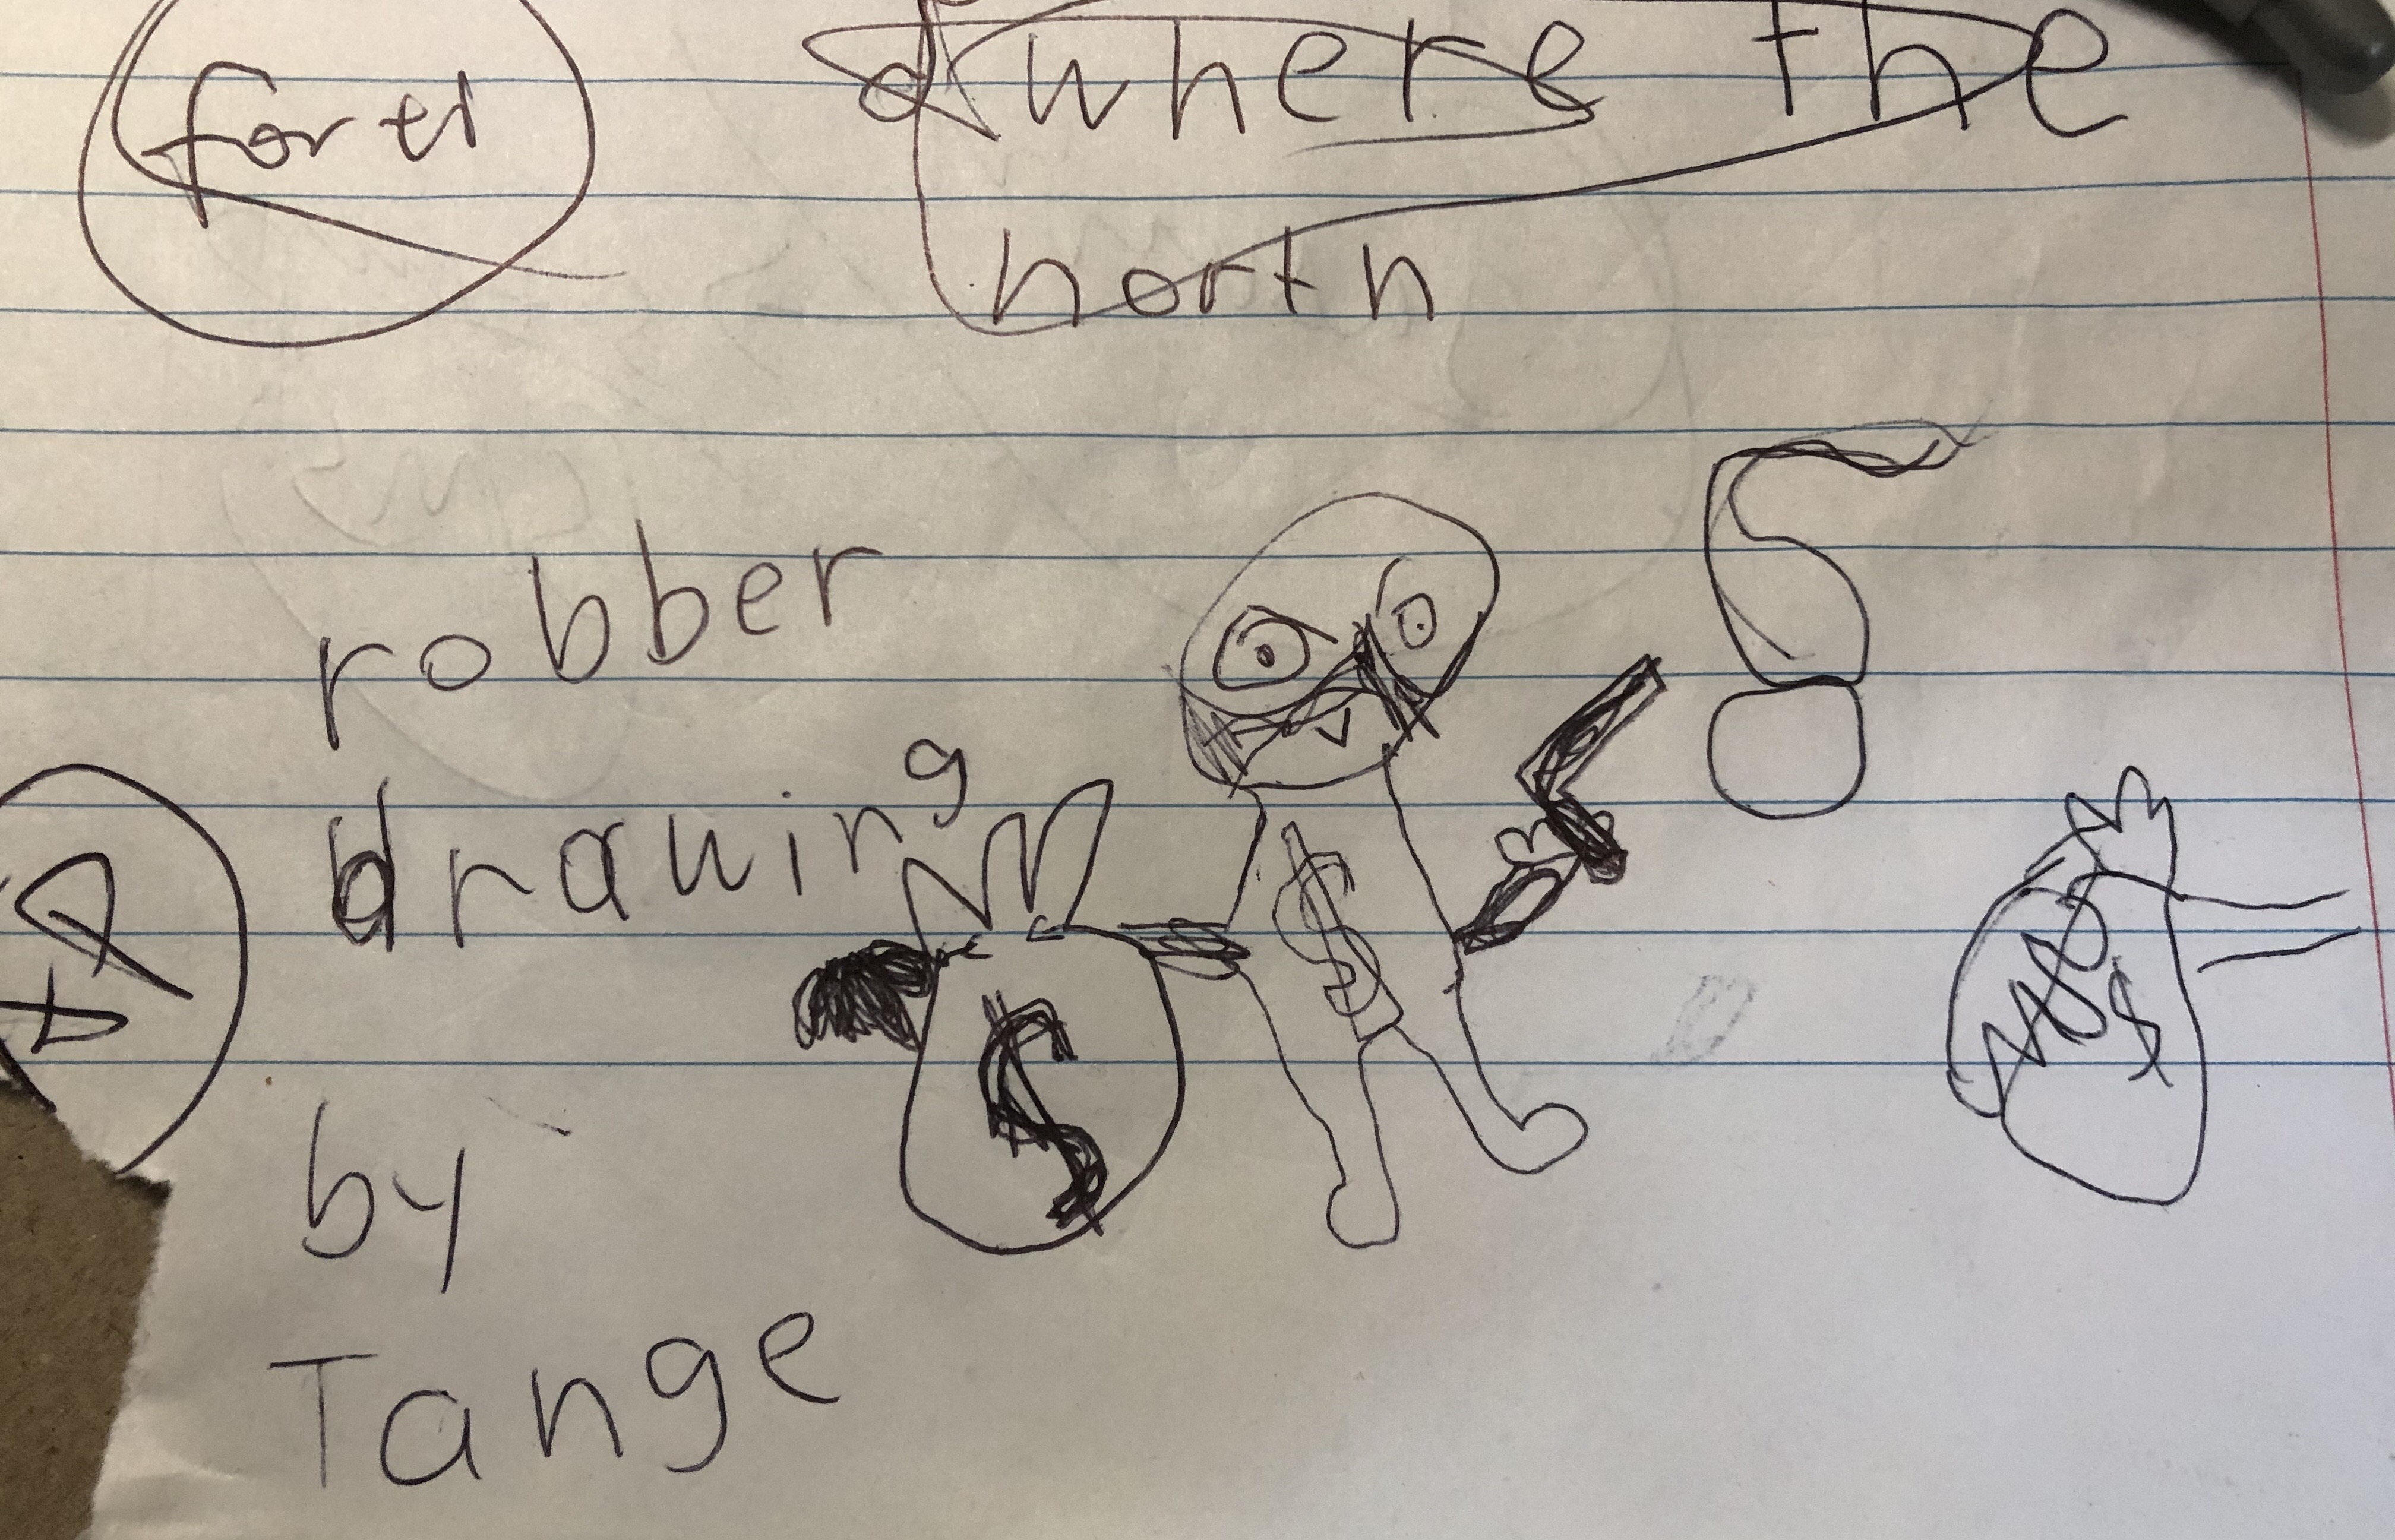 where the
north
robber
drawing
by
Tange
$
$
$